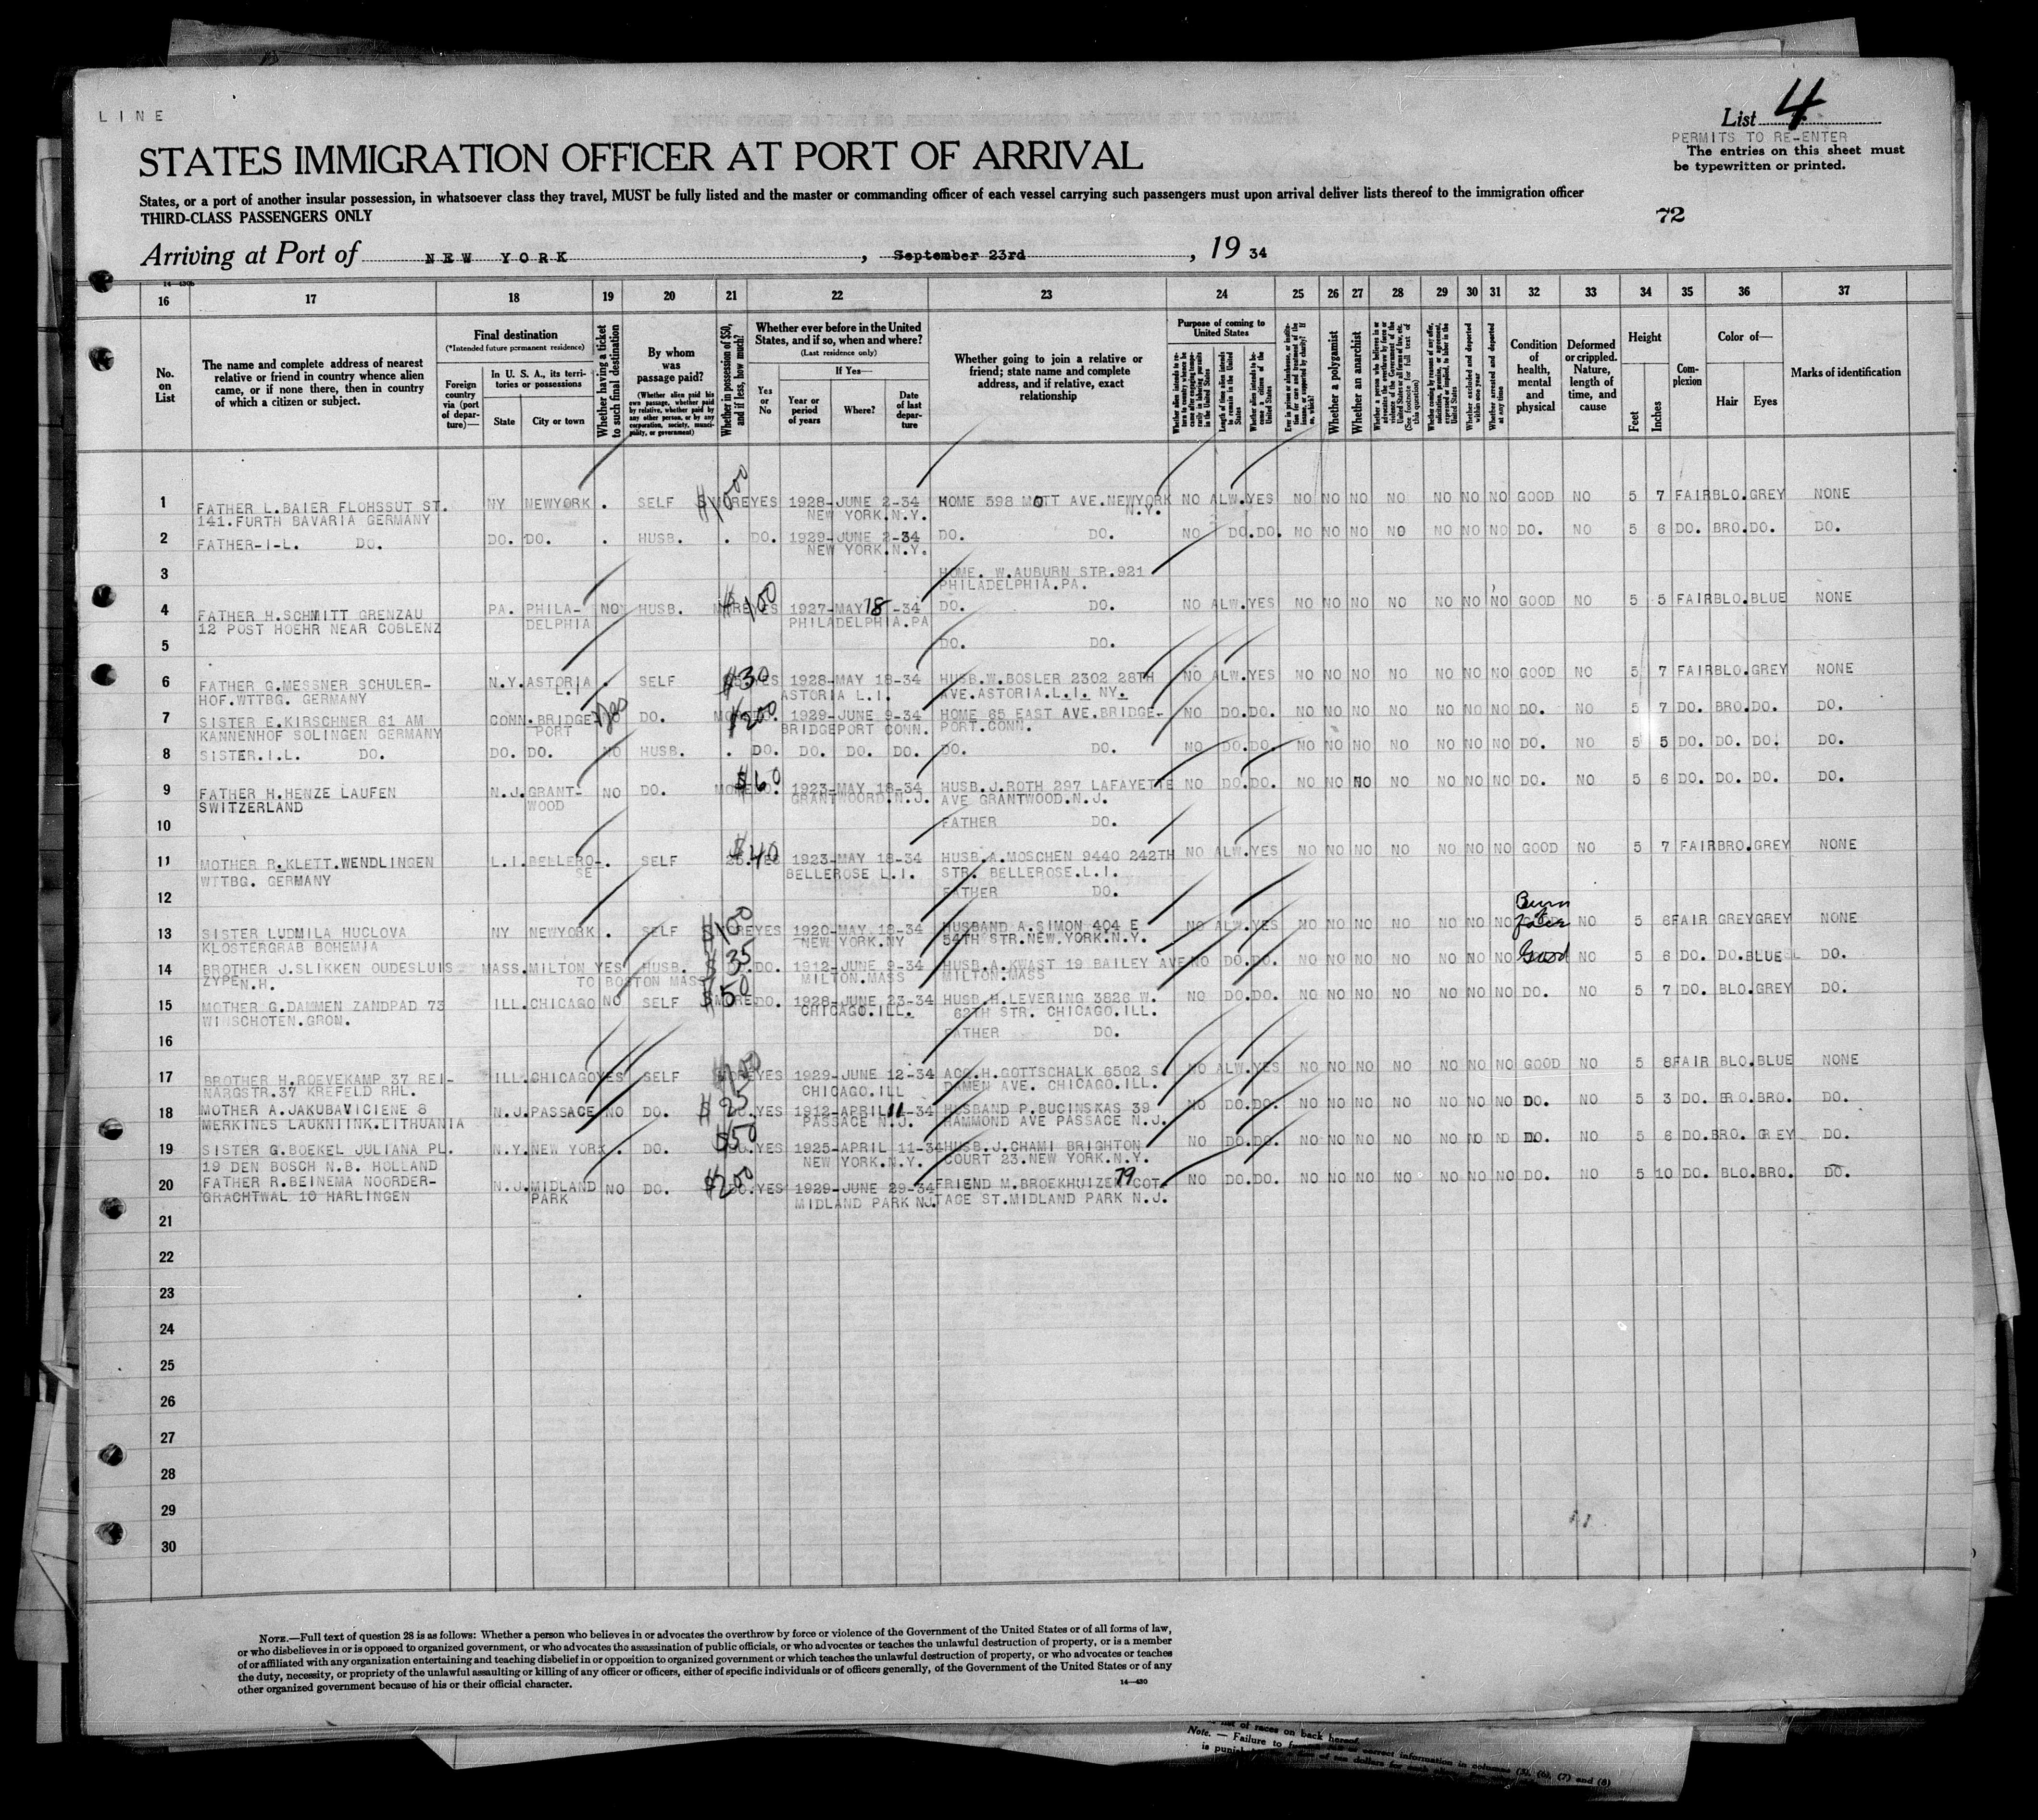 LINE
List 4
PERMITS TO RE-ENTER
STATES IMMIGRATION OFFICER AT PORT OF ARRIVAL
The entries on this sheet must
be typewritten or printed.
States, or a port of another insular possession, in whatsoever class they travel, MUST be fully listed and the master or commanding officer of each vessel carrying such passengers must upon arrival deliver lists thereof to the immigration officer
THIRD-CLASS PASSENGERS ONLY
72
Arriving at Port of NEW YORK, September 23rd, 19 34
16 17 18 19 20 21 22 23 24 25 26 27 28 29 30 31 32 33 34 35 36 37
No. on List
The name and complete address of nearest
relative or friend in country whence alien
came, or if none there, then in country
of which a citizen or subject.
Final destination
(*Intended future permanent residence)
Foreign country via (port of departure)—
In U. S. A., its territories or possessions
State
City or town
Whether having a ticket to such final destination
By whom was passage paid?
(Whether alien paid his own passage, whether paid by relative, whether paid by any other person, or by any corporation, society, municipality, or government)
Whether in possession of $50, and if less, how much?
Whether ever before in the United States, and if so, when and where?
(Last residence only)
Yes or No
If Yes—
Year or period of years
Where?
Date of last departure
Whether going to join a relative or
friend; state name and complete
address, and if relative, exact
relationship
Purpose of coming to United States
Whether a polygamist
Whether an anarchist
Condition of health, mental and physical
Deformed or crippled. Nature, length of time, and cause
Height
Feet
Inches
Complexion
Color of—
Hair
Eyes
Marks of identification
1 FATHER L.BAIER FLOHSSUT ST. NY NEWYORK . SELF $1000 YES 1928-JUNE 2-34 HOME 598 MOTT AVE.NEWYORK NO ALW.YES NO NO NO NO NO NO NO GOOD NO 5 7 FAIR BLO.GREY NONE
141.FURTH BAVARIA GERMANY NEW YORK.N.Y. N.Y.
2 FATHER-I-L. DO. DO. DO. . HUSB. . DO. 1929-JUNE 2-34 DO. DO. NO DO.DO. NO NO NO NO NO NO NO DO. NO 5 6 DO. BRO.DO. DO.
NEW YORK.N.Y.
3 HOME. W.AUBURN STR.921
PHILADELPHIA.PA.
4 FATHER H.SCHMITT GRENZAU PA. PHILA- NO HUSB. $100 YES 1927-MAY 18-34 DO. DO. NO ALW.YES NO NO NO NO NO NO NO GOOD NO 5 5 FAIR BLO.BLUE NONE
12 POST HOEHR NEAR COBLENZ DELPHIA PHILADELPHIA.PA
5 DO. DO.
6 FATHER G.MESSNER SCHULER- N.Y. ASTORIA . SELF $30 YES 1928-MAY 18-34 HUSB.W.BOSLER 2302 28TH NO ALW.YES NO NO NO NO NO NO NO GOOD NO 5 7 FAIR BLO.GREY NONE
HOF.WTTBG. GERMANY L.I. ASTORIA L.I. AVE.ASTORIA.L.I. NY.
7 SISTER E.KIRSCHNER 61 AM CONN. BRIDGE- yes DO. $200 DO. 1929-JUNE 9-34 HOME 65 EAST AVE.BRIDGE- NO DO.DO. NO NO NO NO NO NO NO DO. NO 5 7 DO. BRO.DO. DO.
KANNENHOF SOLINGEN GERMANY PORT BRIDGEPORT CONN. PORT.CONN.
8 SISTER.I.L. DO. DO. DO. NO HUSB. . DO. DO. DO. DO. DO. DO. NO DO.DO. NO NO NO NO NO NO NO DO. NO 5 5 DO. DO. DO. DO.
9 FATHER H.HENZE LAUFEN N.J. GRANT- NO DO. $60 DO. 1923-MAY 18-34 HUSB.J.ROTH 297 LAFAYETTE NO DO.DO. NO NO NO NO NO NO NO DO. NO 5 6 DO. DO. DO. DO.
SWITZERLAND WOOD GRANTWOORD.N.J. AVE GRANTWOOD.N.J.
10 FATHER DO.
11 MOTHER R.KLETT.WENDLINGEN L.I. BELLERO- . SELF $40 YES 1923-MAY 18-34 HUSB.A.MOSCHEN 9440 242TH NO ALW.YES NO NO NO NO NO NO NO GOOD NO 5 7 FAIR BRO.GREY NONE
WTTBG. GERMANY SE BELLEROSE L.I. STR. BELLEROSE.L.I.
12 FATHER DO.
13 SISTER LUDMILA HUCLOVA NY NEWYORK . SELF $100 YES 1920-MAY 18-34 HUSBAND A.SIMON 404 E NO ALW.YES NO NO NO NO NO NO NO NO 5 6 FAIR GREY GREY NONE
KLOSTERGRAB BOHEMIA NEW YORK.NY 54TH STR.NEW.YORK.N.Y.
14 BROTHER J.SLIKKEN OUDESLUIS MASS. MILTON YES HUSB. $35 DO. 1912-JUNE 9-34 HUSB.A.KWAST 19 BAILEY AVE NO DO.DO. NO NO NO NO NO NO NO Good NO 5 6 DO. DO.BLUE DO.
ZYPE N.H. TO BOSTON MASS MILTON.MASS MILTON.MASS
15 MOTHER G.DAMMEN ZANDPAD 73 ILL. CHICAGO NO SELF $50 DO. 1928-JUNE 23-34 HUSB.H.LEVERING 3826 W. NO DO.DO. NO NO NO NO NO NO NO DO. NO 5 7 DO. BLO.GREY DO.
WINSCHOTEN.GRON. CHICAGO.ILL. 62TH STR. CHICAGO.ILL.
16 FATHER DO.
17 BROTHER H.ROEVEKAMP 37 REI- ILL. CHICAGO YES SELF YES 1929-JUNE 12-34 ACQ.H.GOTTSCHALK 6502 S. NO ALW.YES NO NO NO NO NO NO NO GOOD NO 5 8 FAIR BLO.BLUE NONE
NARGSTR.37 KREFELD RHL. CHICAGO.ILL DAMEN AVE. CHICAGO.ILL.
18 MOTHER A.JAKUBAVICIENE 8 N.J. PASSACE NO DO. $25 YES 1912-APRIL 11-34 HUSBAND P.BUCINSKAS 39 NO DO.DO. NO NO NO NO NO NO NO DO. NO 5 3 DO. BRO.BRO. DO.
MERKINES LAUKNIINK.LITHUANIA PASSACE N.J. HAMMOND AVE PASSACE N.J.
19 SISTER G.BOEKEL JULIANA PL. N.Y. NEW YORK . DO. $50 YES 1925-APRIL 11-34 HUSB.J.CHAMI BRIGHTON NO DO.DO. NO NO NO NO NO NO NO DO. NO 5 6 DO. BRO. GREY DO.
19 DEN BOSCH N.B. HOLLAND NEW YORK.N.Y. COURT 23.NEW YORK.N.Y.
20 FATHER R.BEINEMA NOORDER- N.J. MIDLAND NO DO. $200 YES 1929-JUNE 29-34 FRIEND M.BROEKHUIZEN 79 COT- NO DO.DO. NO NO NO NO NO NO NO DO. NO 5 10 DO. BLO.BRO. DO.
GRACHTWAL 10 HARLINGEN PARK MIDLAND PARK NJ. TAGE ST.MIDLAND PARK N.J.
21
22
23
24
25
26
27
28
29
30
NOTE.—Full text of question 28 is as follows: Whether a person who believes in or advocates the overthrow by force or violence of the Government of the United States or of all forms of law,
or who disbelieves in or is opposed to organized government, or who advocates the assassination of public officials, or who advocates or teaches the unlawful destruction of property, or is a member
of or affiliated with any organization entertaining and teaching disbelief in or opposition to organized government or which teaches the unlawful destruction of property, or who advocates or teaches
the duty, necessity, or propriety of the unlawful assaulting or killing of any officer or officers, either of specific individuals or of officers generally, of the Government of the United States or of any
other organized government because of his or their official character.
14—430
list of races on back hereof.
Note. — Failure to correct information in columns (5), (6), (7) and (8)